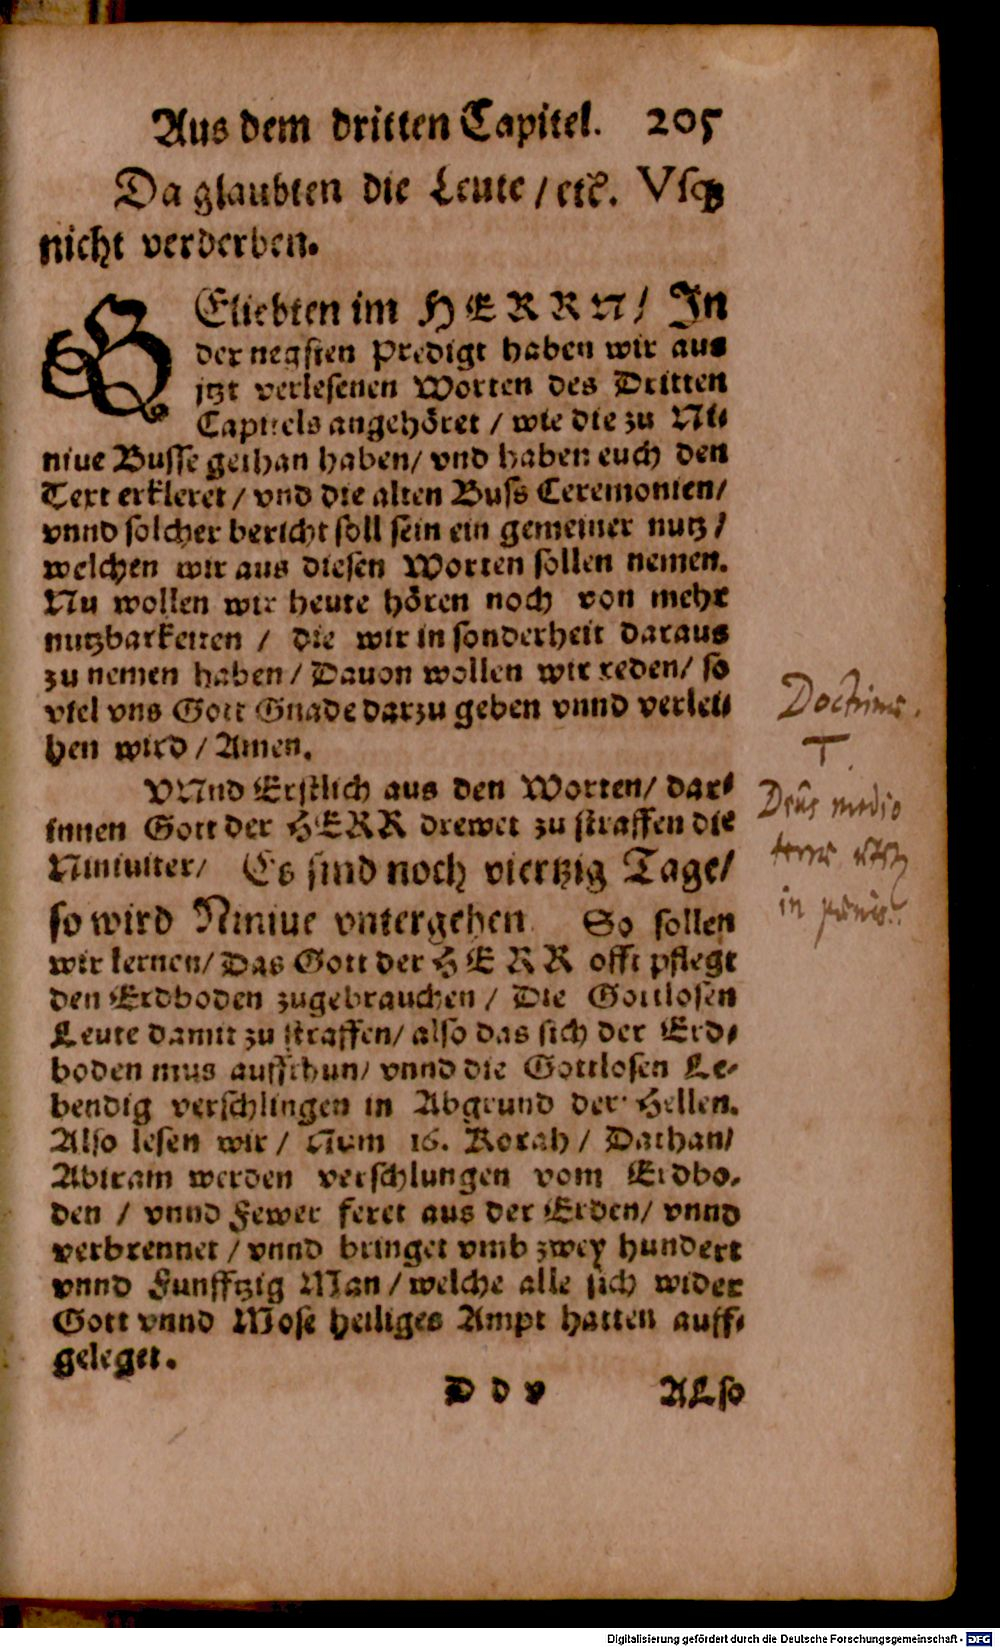 Aus dem dritten Capitel. 205
Da glaubten die Leute / etc. Vsq;
nicht verderben.
GEliebten im HERRN / In
der negsten Predigt haben wir aus
jtzt verlesenen Worten des Dritten
Capitels angehöret / wie die zu Ni-
niue Busse gethan haben / vnd haben euch den
Text erkleret / vnd die alten Buss Ceremonien /
vnnd solcher bericht soll sein ein gemeiner nutz /
welchen wir aus diesen Worten sollen nemen.
Nu wollen wir heute hören noch von mehr
nutzbarkeiten / die wir in sonderheit daraus
zu nemen haben / Dauon wollen wir reden / so
viel vns Gott Gnade darzu geben vnnd verlei-
hen wird / Amen.
VNnd Erstlich aus den Worten / dar-
innen Gott der HERR drewet zu straffen die
Niniuiter / Es sind noch viertzig Tage /
so wird Niniue vntergehen. So sollen
wir lernen / Das Gott der HERR offt pflegt
den Erdboden zugebrauchen / Die Gottlosen
Leute damit zu straffen / also das sich der Erd-
boden mus auffthun / vnnd die Gottlosen Le-
bendig verschlingen in Abgrund der Hellen.
Also lesen wir / Num 16. Korah / Dathan /
Abiram werden verschlungen vom Erdbo-
den / vnnd Fewer feret aus der Erden / vnnd
verbrennet / vnnd bringet vmb zwey hundert
vnnd Funfftzig Man / welche alle sich wider
Gott vnnd Mose heiliges Ampt hatten auff-
geleget.
D d v ALso
Doctrina.
I
Deus medio
terrae
in
Digitalisierung gefördert durch die Deutsche Forschungsgemeinschaft - DFG